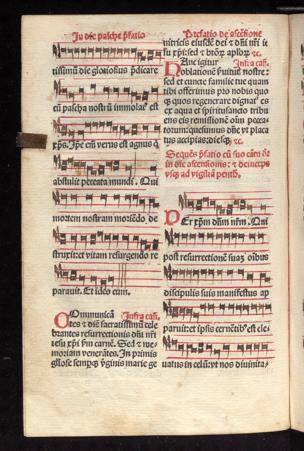 In die pasche p̃fatio
tissimū die gloriosius p̃dicare
cū pascha nostrū immolat᷒ est
xp̃s. Ip̃e em̃ verus est agnus q̃
abstulit peccata mundi. Qui
mortem nostram moriẽdo de
struxit: et vitam resurgendo re
parauit. Et ideo cum.
COmmunicã Infra cañ.
tes ⁊ diẽ sacratissimũ cele
brantes resurrectionis dñi nr̃i
iesu xp̃i s̃m carnẽ. Sed ⁊ me-
moriam venerãtes. In primis
gliose semp̲q̃ ꝟginis marie ge
Prefatio de ascẽsione
nitricis eiusdẽ dei ⁊ dñi nr̃i ie
su xp̃i: sed ⁊ btõꝝ aploꝝ ⁊c.
HAnc igitur Infra cañ.
oblationẽ ẜuitut᷒ nostre:
sed et cuncte familie tue quam
tibi offerimus pro nobis quo
qꝫ quos regenerare dignat᷒ es
ex aqua et spiritusancto tribu
ens eis remissionẽ oĩm pecca
torum: quesumus dñe vt placa
tus accipias: diesqꝫ ⁊c.
PEr xp̃m dñm nr̃m. Qui
post resurrectionẽ suaꝫ oĩbus
discipulis suis manifestus ap
paruit: et ipsis cernẽtibꝰ est ele-
uatus in celũ: vt nos diuinita-